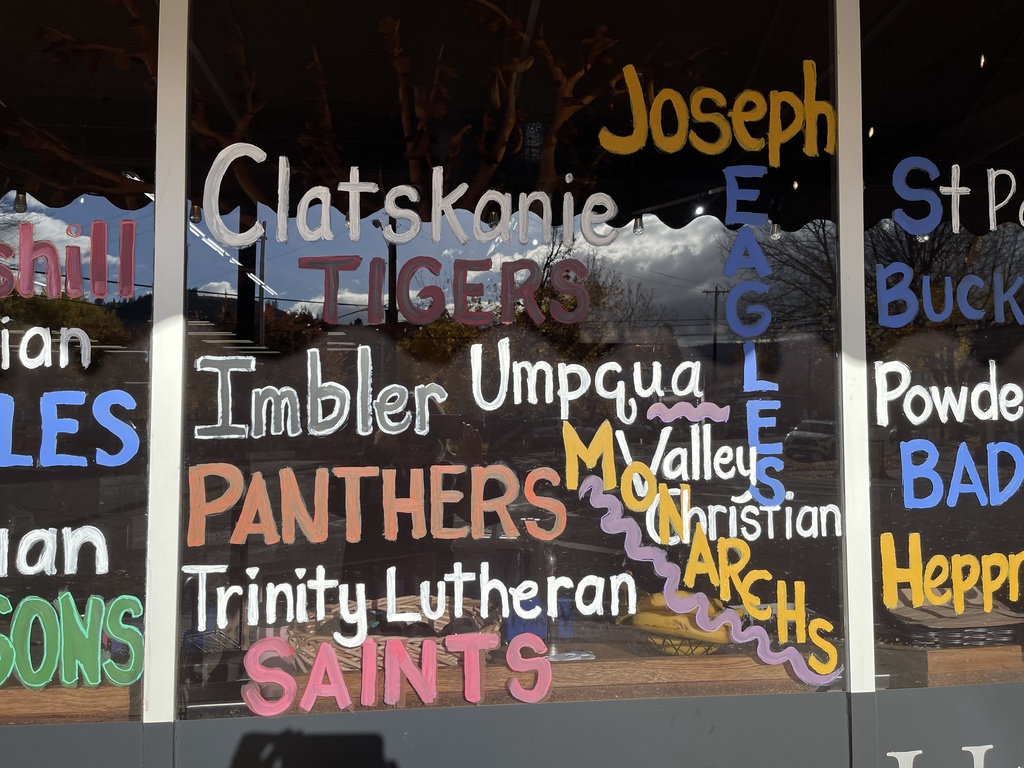 shill
ian
LES
ian
SONS
Clatskanie
TIGERS
Imbler
PANTHERS
Trinity Lutheran
SAINTS
Joseph
EAGLES
Umpqua
Valley
Christian
MONARCHS
St Pa
BUCK
Powde
BAD
Heppn